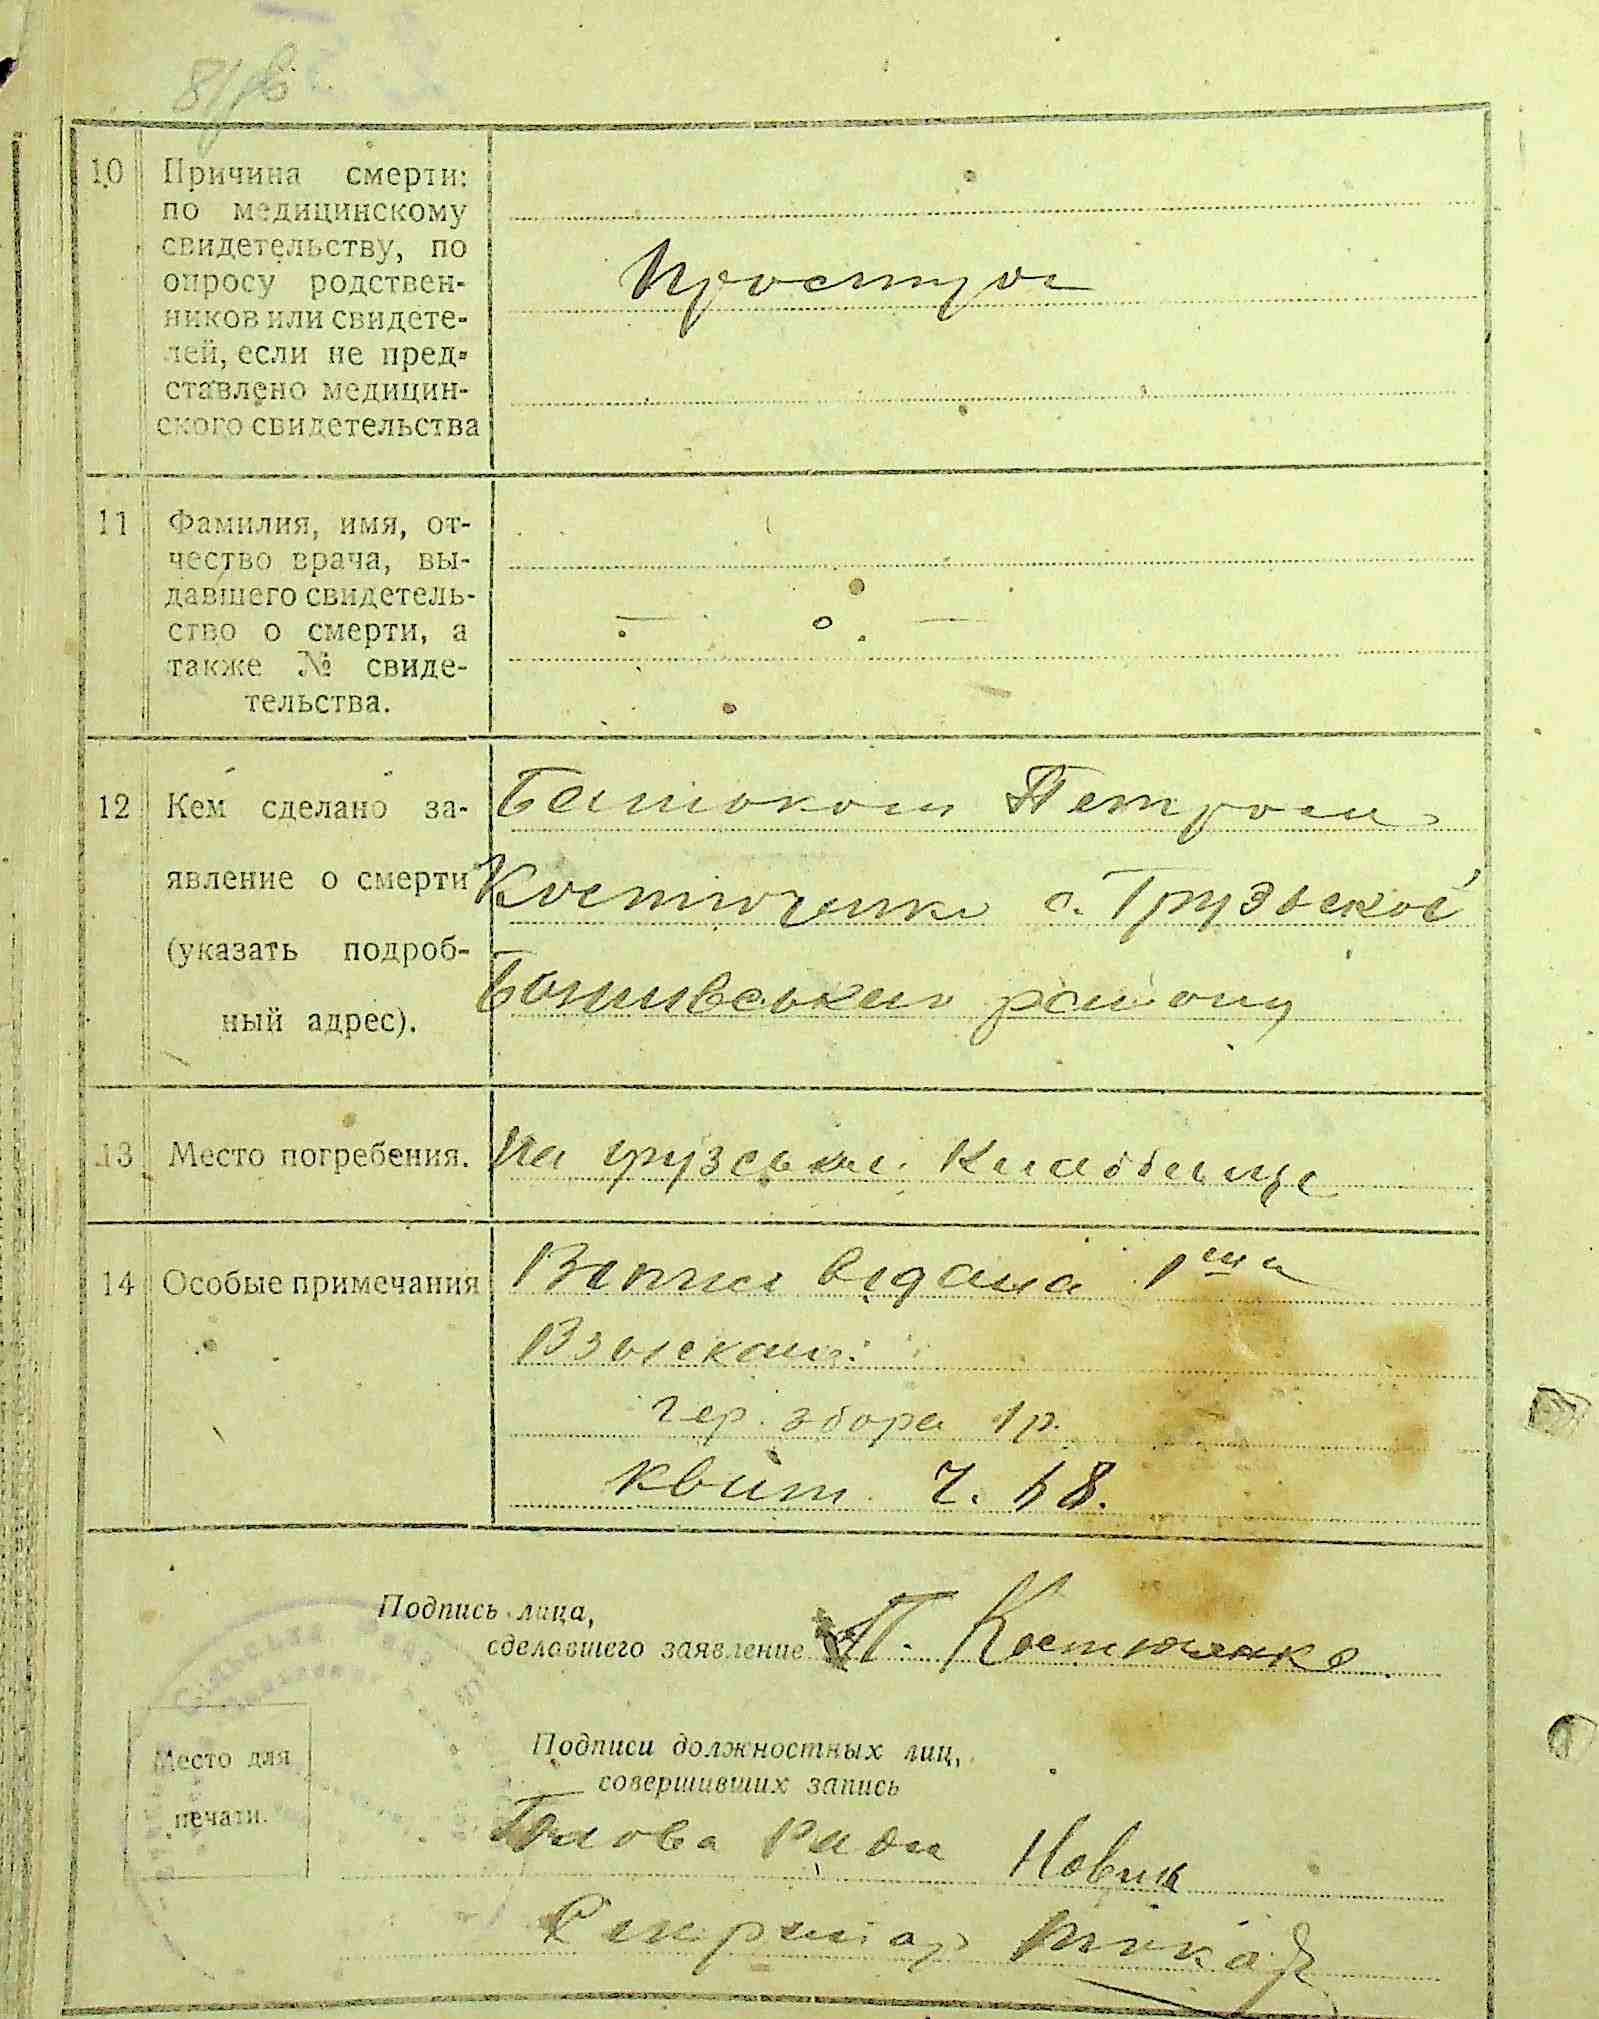 10 Причина смерти:
по медицинскому
свидетельству, по
опросу родствен-
ников или свидете-
лей, если не пред-
ставлено медицин-
ского свидетельства
Простуда
11 Фамилия, имя, от-
чество врача, вы-
давшего свидетель-
ство о смерти, а
также № свиде-
тельства.
12 Кем сделано за-
явление о смерти
(указать подроб-
ный адрес).
Батьком Петром
Костюченко с. Грузської
району
13 Место погребения.
На грузськім кладбище
14 Особые примечания
Випис видана
Взыскан:
гер. збора 1 р.
квит. Ч. 48.
Подпись лица,
сделавшего заявление П. Костюченко
Место для
печати.
Подписи должностных лиц,
совершивших запись
Голова ради Новик
Секретар